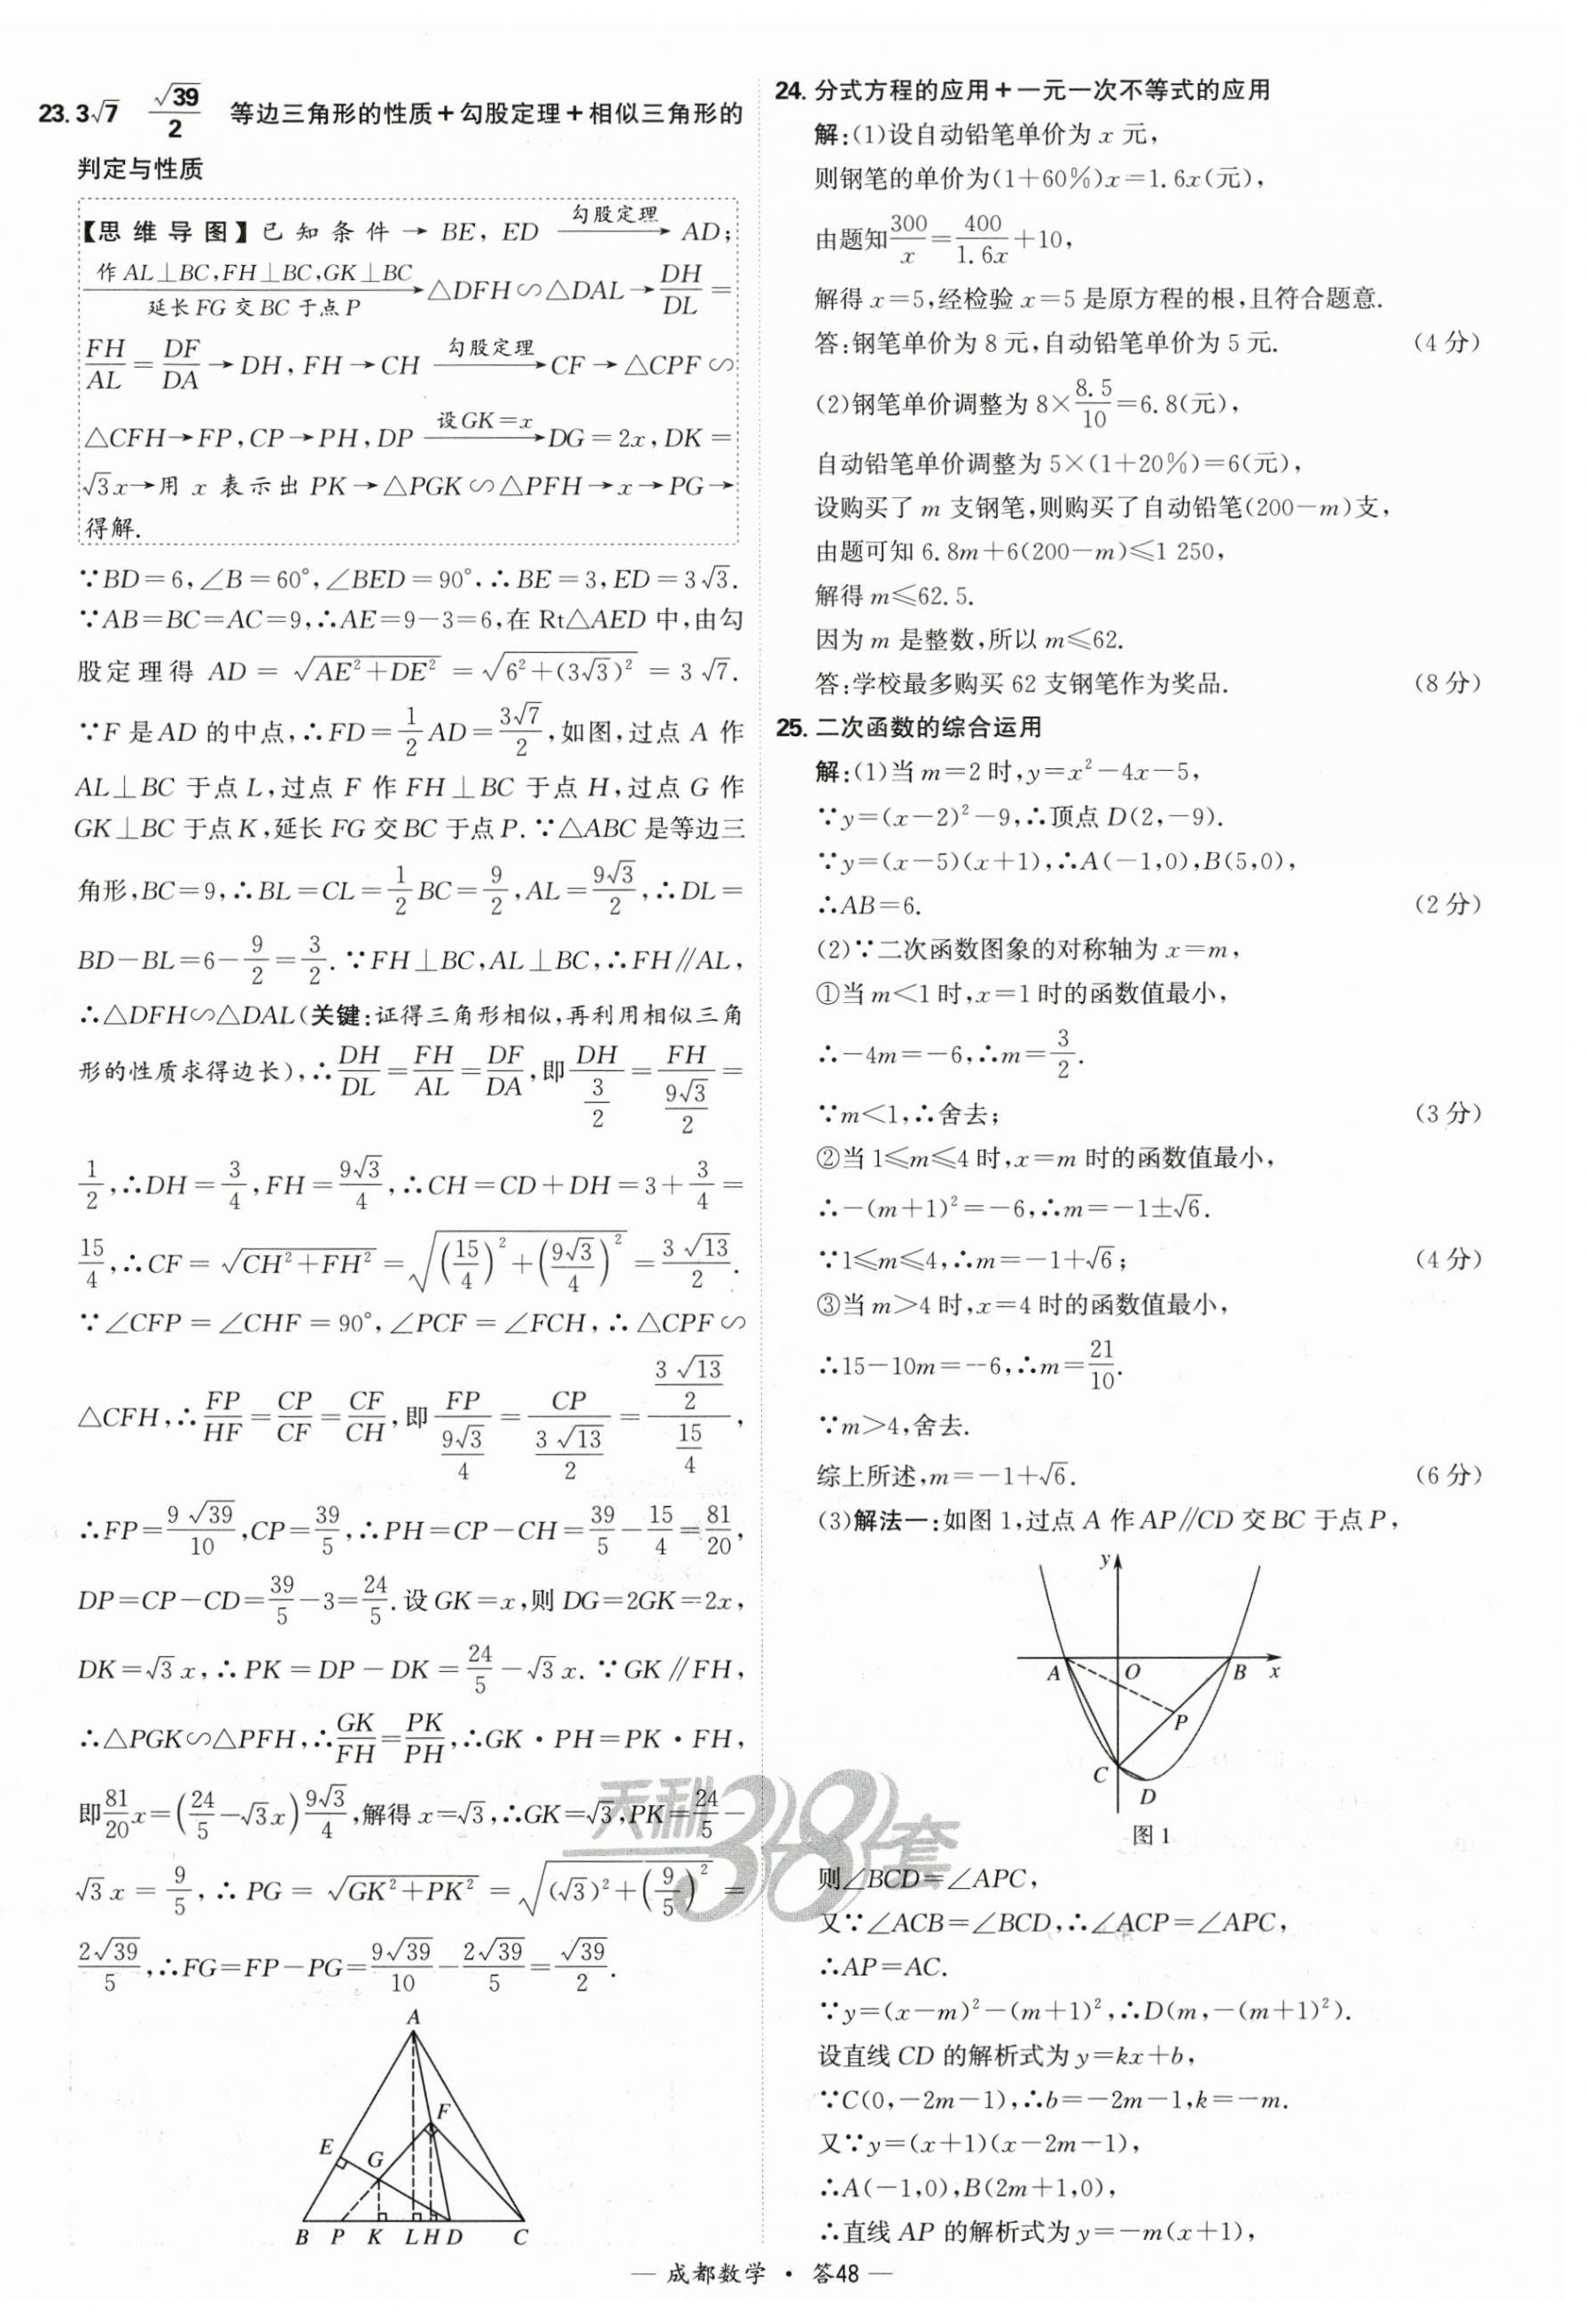 23. 3√7  √39/2  等边三角形的性质+勾股定理+相似三角形的
判定与性质
【思维导图】已知条件→BE, ED —勾股定理→ AD;
—作AL⊥BC,FH⊥BC,GK⊥BC 延长FG交BC于点P→△DFH∽△DAL→DH/DL=
FH/AL=DF/DA→DH,FH→CH —勾股定理→CF→△CPF∽
△CFH→FP,CP→PH,DP —设GK=x→DG=2x,DK=
√3x→用x表示出PK→△PGK∽△PFH→x→PG→
得解.
∵BD=6,∠B=60°,∠BED=90°,∴BE=3,ED=3√3.
∵AB=BC=AC=9,∴AE=9-3=6,在Rt△AED中,由勾
股定理得AD=√(AE²+DE²)=√(6²+(3√3)²)=3√7.
∵F是AD的中点,∴FD=1/2AD=3√7/2,如图,过点A作
AL⊥BC于点L,过点F作FH⊥BC于点H,过点G作
GK⊥BC于点K,延长FG交BC于点P.∵△ABC是等边三
角形,BC=9,∴BL=CL=1/2BC=9/2,AL=9√3/2,∴DL=
BD-BL=6-9/2=3/2.∵FH⊥BC,AL⊥BC,∴FH∥AL,
∴△DFH∽△DAL(关键:证得三角形相似,再利用相似三角
形的性质求得边长),∴DH/DL=FH/AL=DF/DA,即DH/(3/2)=FH/(9√3/2)=
1/2,∴DH=3/4,FH=9√3/4,∴CH=CD+DH=3+3/4=
15/4,∴CF=√(CH²+FH²)=√((15/4)²+(9√3/4)²)=3√13/2.
∵∠CFP=∠CHF=90°,∠PCF=∠FCH,∴△CPF∽
△CFH,∴FP/HF=CP/CF=CF/CH,即FP/(9√3/4)=CP/(3√13/2)=(3√13/2)/(15/4),
∴FP=9√39/10,CP=39/5,∴PH=CP-CH=39/5-15/4=81/20,
DP=CP-CD=39/5-3=24/5.设GK=x,则DG=2GK=2x,
DK=√3x,∴PK=DP-DK=24/5-√3x.∵GK∥FH,
∴△PGK∽△PFH,∴GK/FH=PK/PH,∴GK·PH=PK·FH,
即81/20x=(24/5-√3x)9√3/4,解得x=√3,∴GK=√3,PK=24/5-
√3x=9/5,∴PG=√(GK²+PK²)=√((√3)²+(9/5)²)=
2√39/5,∴FG=FP-PG=9√39/10-2√39/5=√39/2.
A
F
E
G
B P K L H D C
24. 分式方程的应用+一元一次不等式的应用
解:(1)设自动铅笔单价为x元,
则钢笔的单价为(1+60%)x=1.6x(元),
由题知300/x=400/1.6x+10,
解得x=5,经检验x=5是原方程的根,且符合题意.
答:钢笔单价为8元,自动铅笔单价为5元. (4分)
(2)钢笔单价调整为8×8.5/10=6.8(元),
自动铅笔单价调整为5×(1+20%)=6(元),
设购买了m支钢笔,则购买了自动铅笔(200-m)支,
由题可知6.8m+6(200-m)≤1 250,
解得m≤62.5.
因为m是整数,所以m≤62.
答:学校最多购买62支钢笔作为奖品. (8分)
25. 二次函数的综合运用
解:(1)当m=2时,y=x²-4x-5,
∵y=(x-2)²-9,∴顶点D(2,-9).
∵y=(x-5)(x+1),∴A(-1,0),B(5,0),
∴AB=6. (2分)
(2)∵二次函数图象的对称轴为x=m,
①当m<1时,x=1时的函数值最小,
∴-4m=-6,∴m=3/2.
∵m<1,∴舍去; (3分)
②当1≤m≤4时,x=m时的函数值最小,
∴-(m+1)²=-6,∴m=-1±√6.
∵1≤m≤4,∴m=-1+√6; (4分)
③当m>4时,x=4时的函数值最小,
∴15-10m=-6,∴m=21/10.
∵m>4,舍去.
综上所述,m=-1+√6. (6分)
(3)解法一:如图1,过点A作AP∥CD交BC于点P,
y
A O B x
P
C
D
图1
则∠BCD=∠APC,
又∵∠ACB=∠BCD,∴∠ACP=∠APC,
∴AP=AC.
∵y=(x-m)²-(m+1)²,∴D(m,-(m+1)²).
设直线CD的解析式为y=kx+b,
∵C(0,-2m-1),∴b=-2m-1,k=-m.
又∵y=(x+1)(x-2m-1),
∴A(-1,0),B(2m+1,0),
∴直线AP的解析式为y=-m(x+1),
天利38套
— 成都数学 · 答48 —